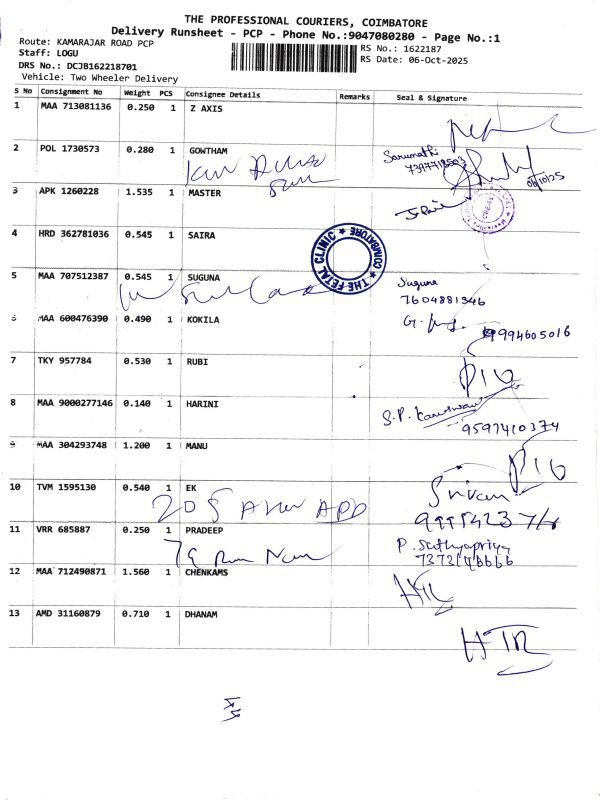 THE PROFESSIONAL COURIERS, COIMBATORE
Delivery Runsheet - PCP - Phone No.:9047080280 - Page No.:1
Route: KAMARAJAR ROAD PCP
RS No.: 1622187
Staff: LOGU
RS Date: 06-Oct-2025
DRS No.: DCJB162218701
Vehicle: Two Wheeler Delivery
S No Consignment No Weight PCS Consignee Details Remarks Seal & Signature
1 MAA 713081136 0.250 1 Z AXIS
2 POL 1730573 0.280 1 GOWTHAM
Sarumathi
06/10/25
3 APK 1260228 1.535 1 MASTER
4 HRD 362781036 0.545 1 SAIRA
THE FETAL CLINIC ★ COIMBATORE ★
5 MAA 707512387 0.545 1 SUGUNA
Suguna
7604881346
6 MAA 600476390 0.490 1 KOKILA
9994605016
7 TKY 957784 0.530 1 RUBI
8 MAA 9000277146 0.140 1 HARINI
S.P.
9597410374
9 MAA 304293748 1.200 1 MANU
10 TVM 1595130 0.540 1 EK
205
Sriram
11 VRR 685887 0.250 1 PRADEEP
P. Sathyapriya
12 MAA 712490871 1.560 1 CHENKAMS
13 AMD 31160879 0.710 1 DHANAM